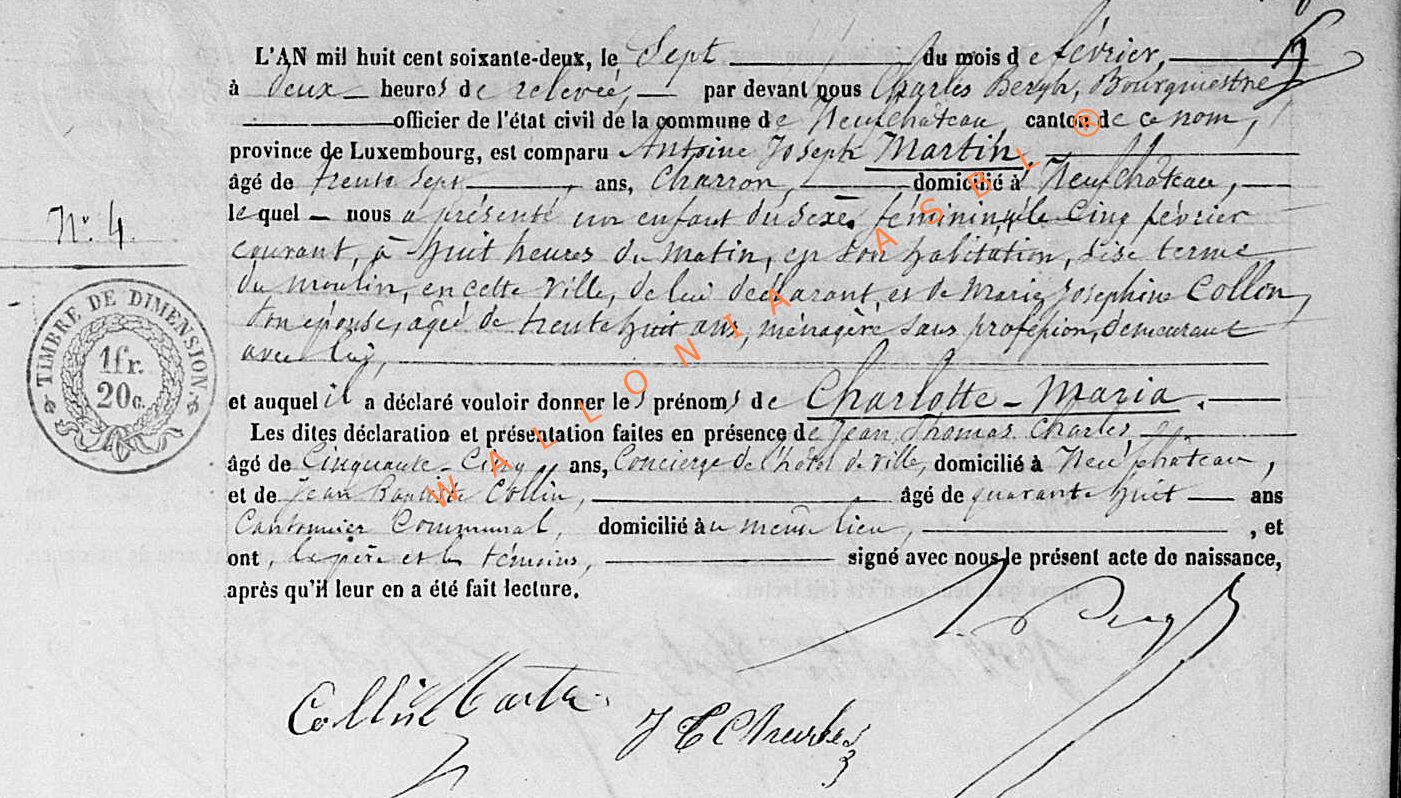 L'AN mil huit cent soixante-deux, le Sept du mois de février,
à deux heures de relevée, par devant nous Charles Bergh, Bourgmestre
officier de l'état civil de la commune de Neufchâteau, canton de ce nom,
province de Luxembourg, est comparu Antoine Joseph Martin,
âgé de trente Sept ans, Charron, domicilié à Neufchâteau,
le quel nous a présenté un enfant du sexe féminin, né le Cinq février
courant, à huit heures du matin, en son habitation, sise terme
du moulin, en cette Ville, de lui déclarant, et de Marie Josephine Collon,
son épouse, âgée de trente huit ans, ménagère sans profession, demeurant
avec lui,
et auquel il a déclaré vouloir donner les prénoms de Charlotte-Maria.
Les dites déclaration et présentation faites en présence de Jean Thomas Charles,
âgé de Cinquante-Cinq ans, Concierge de l'hôtel de Ville, domicilié à Neufchateau,
et de Jean Baptiste Collin, âgé de quarante huit ans
Cantonnier Communal, domicilié au même lieu, , et
ont, le père et les témoins, signé avec nous le présent acte de naissance,
après qu'il leur en a été fait lecture.
N° 4.
TIMBRE DE DIMENSION.
1fr.
20c.
Collin Martin
J T Charles
WALLONIA ASBL ®